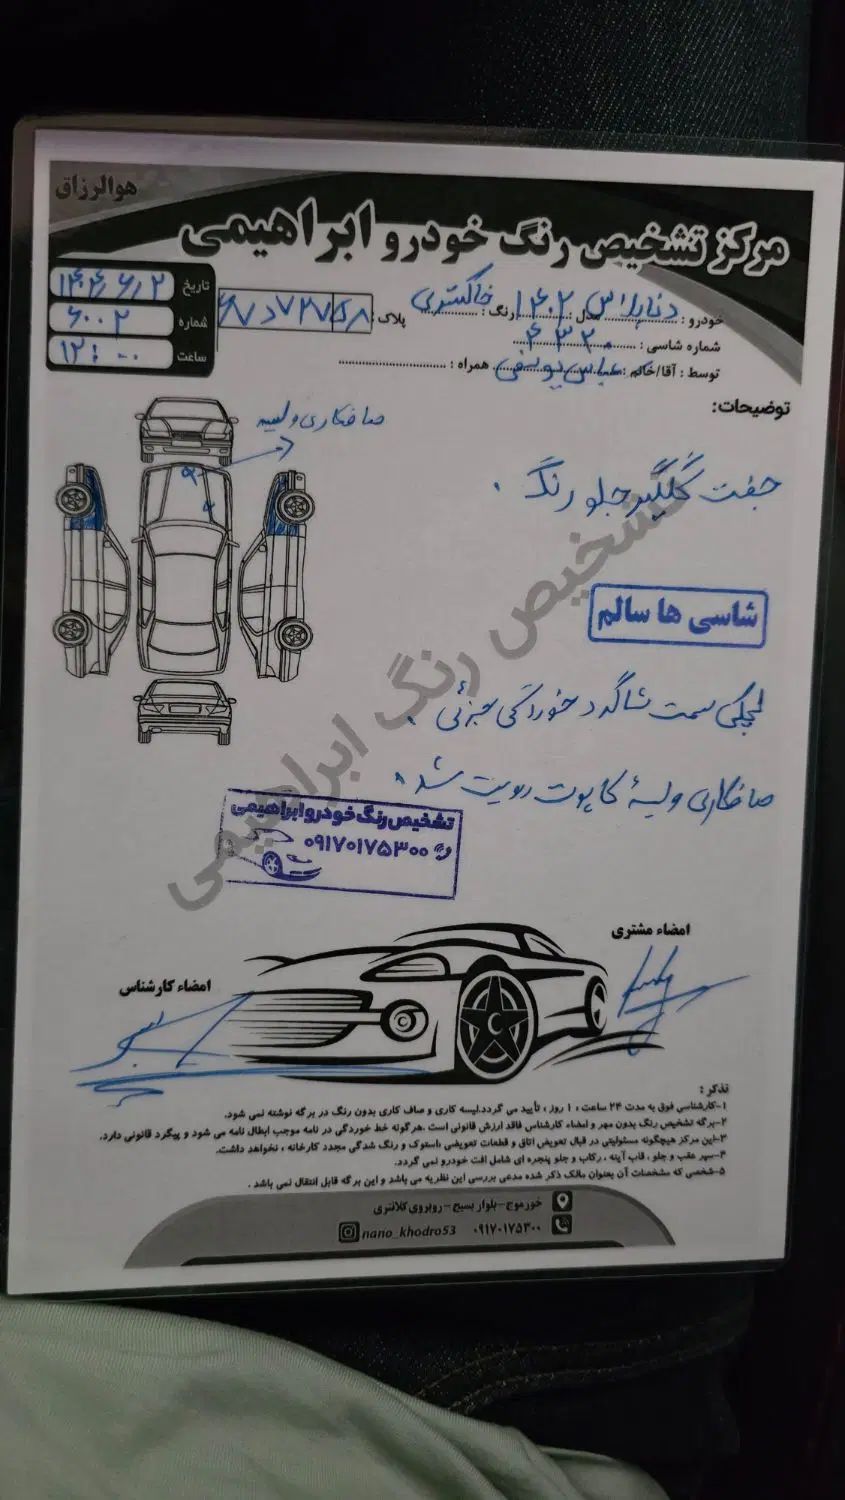 هوالرزاق
مرکز تشخیص رنگ خودرو ابراهیمی
تاریخ ۱۴۰۴/۶/۲
شماره ۶۰۰۲
ساعت ۱۲:۰۰
خودرو : دنا پلاس مدل : ۱۴۰۲ رنگ : خاکستری پلاک :
شماره شاسی : ۴۳۲۰
توسط : آقا/خانم : عباس یوسفی همراه :
توضیحات:
صافکاری و لیسه
جفت گلگیر جلو رنگ .
شاسی ها سالم
لچکی سمت شاگرد خوردگی جزئی .
صافکاری و لیسهٔ کاپوت رویت شد .
تشخیص رنگ ابراهیمی
تشخیص رنگ خودرو ابراهیمی
۰۹۱۷۰۱۷۵۳۰۰
امضاء مشتری
امضاء کارشناس
تذکر :
۱-کارشناسی فوق به مدت ۲۴ ساعت ، ۱ روز ، تأیید می گردد.لیسه کاری و صاف کاری بدون رنگ در برگه نوشته نمی شود.
۲-برگه تشخیص رنگ بدون مهر و امضاء کارشناس فاقد ارزش قانونی است .هرگونه خط خوردگی در نامه موجب ابطال نامه می شود و پیگرد قانونی دارد.
۳-این مرکز هیچگونه مسئولیتی در قبال تعویض اتاق و قطعات تعویضی ،استوک و رنگ شدگی مجدد کارخانه ، نخواهد داشت.
۴-سپر عقب و جلو ، قاب آینه ، رکاب و جلو پنجره ای شامل افت خودرو نمی گردد.
۵-شخصی که مشخصات آن بعنوان مالک ذکر شده مدعی بررسی این نظریه می باشد و این برگه قابل انتقال نمی باشد .
خورموج-بلوار بسیج-روبروی کلانتری
۰۹۱۷۰۱۷۵۳۰۰ nano_khodro53